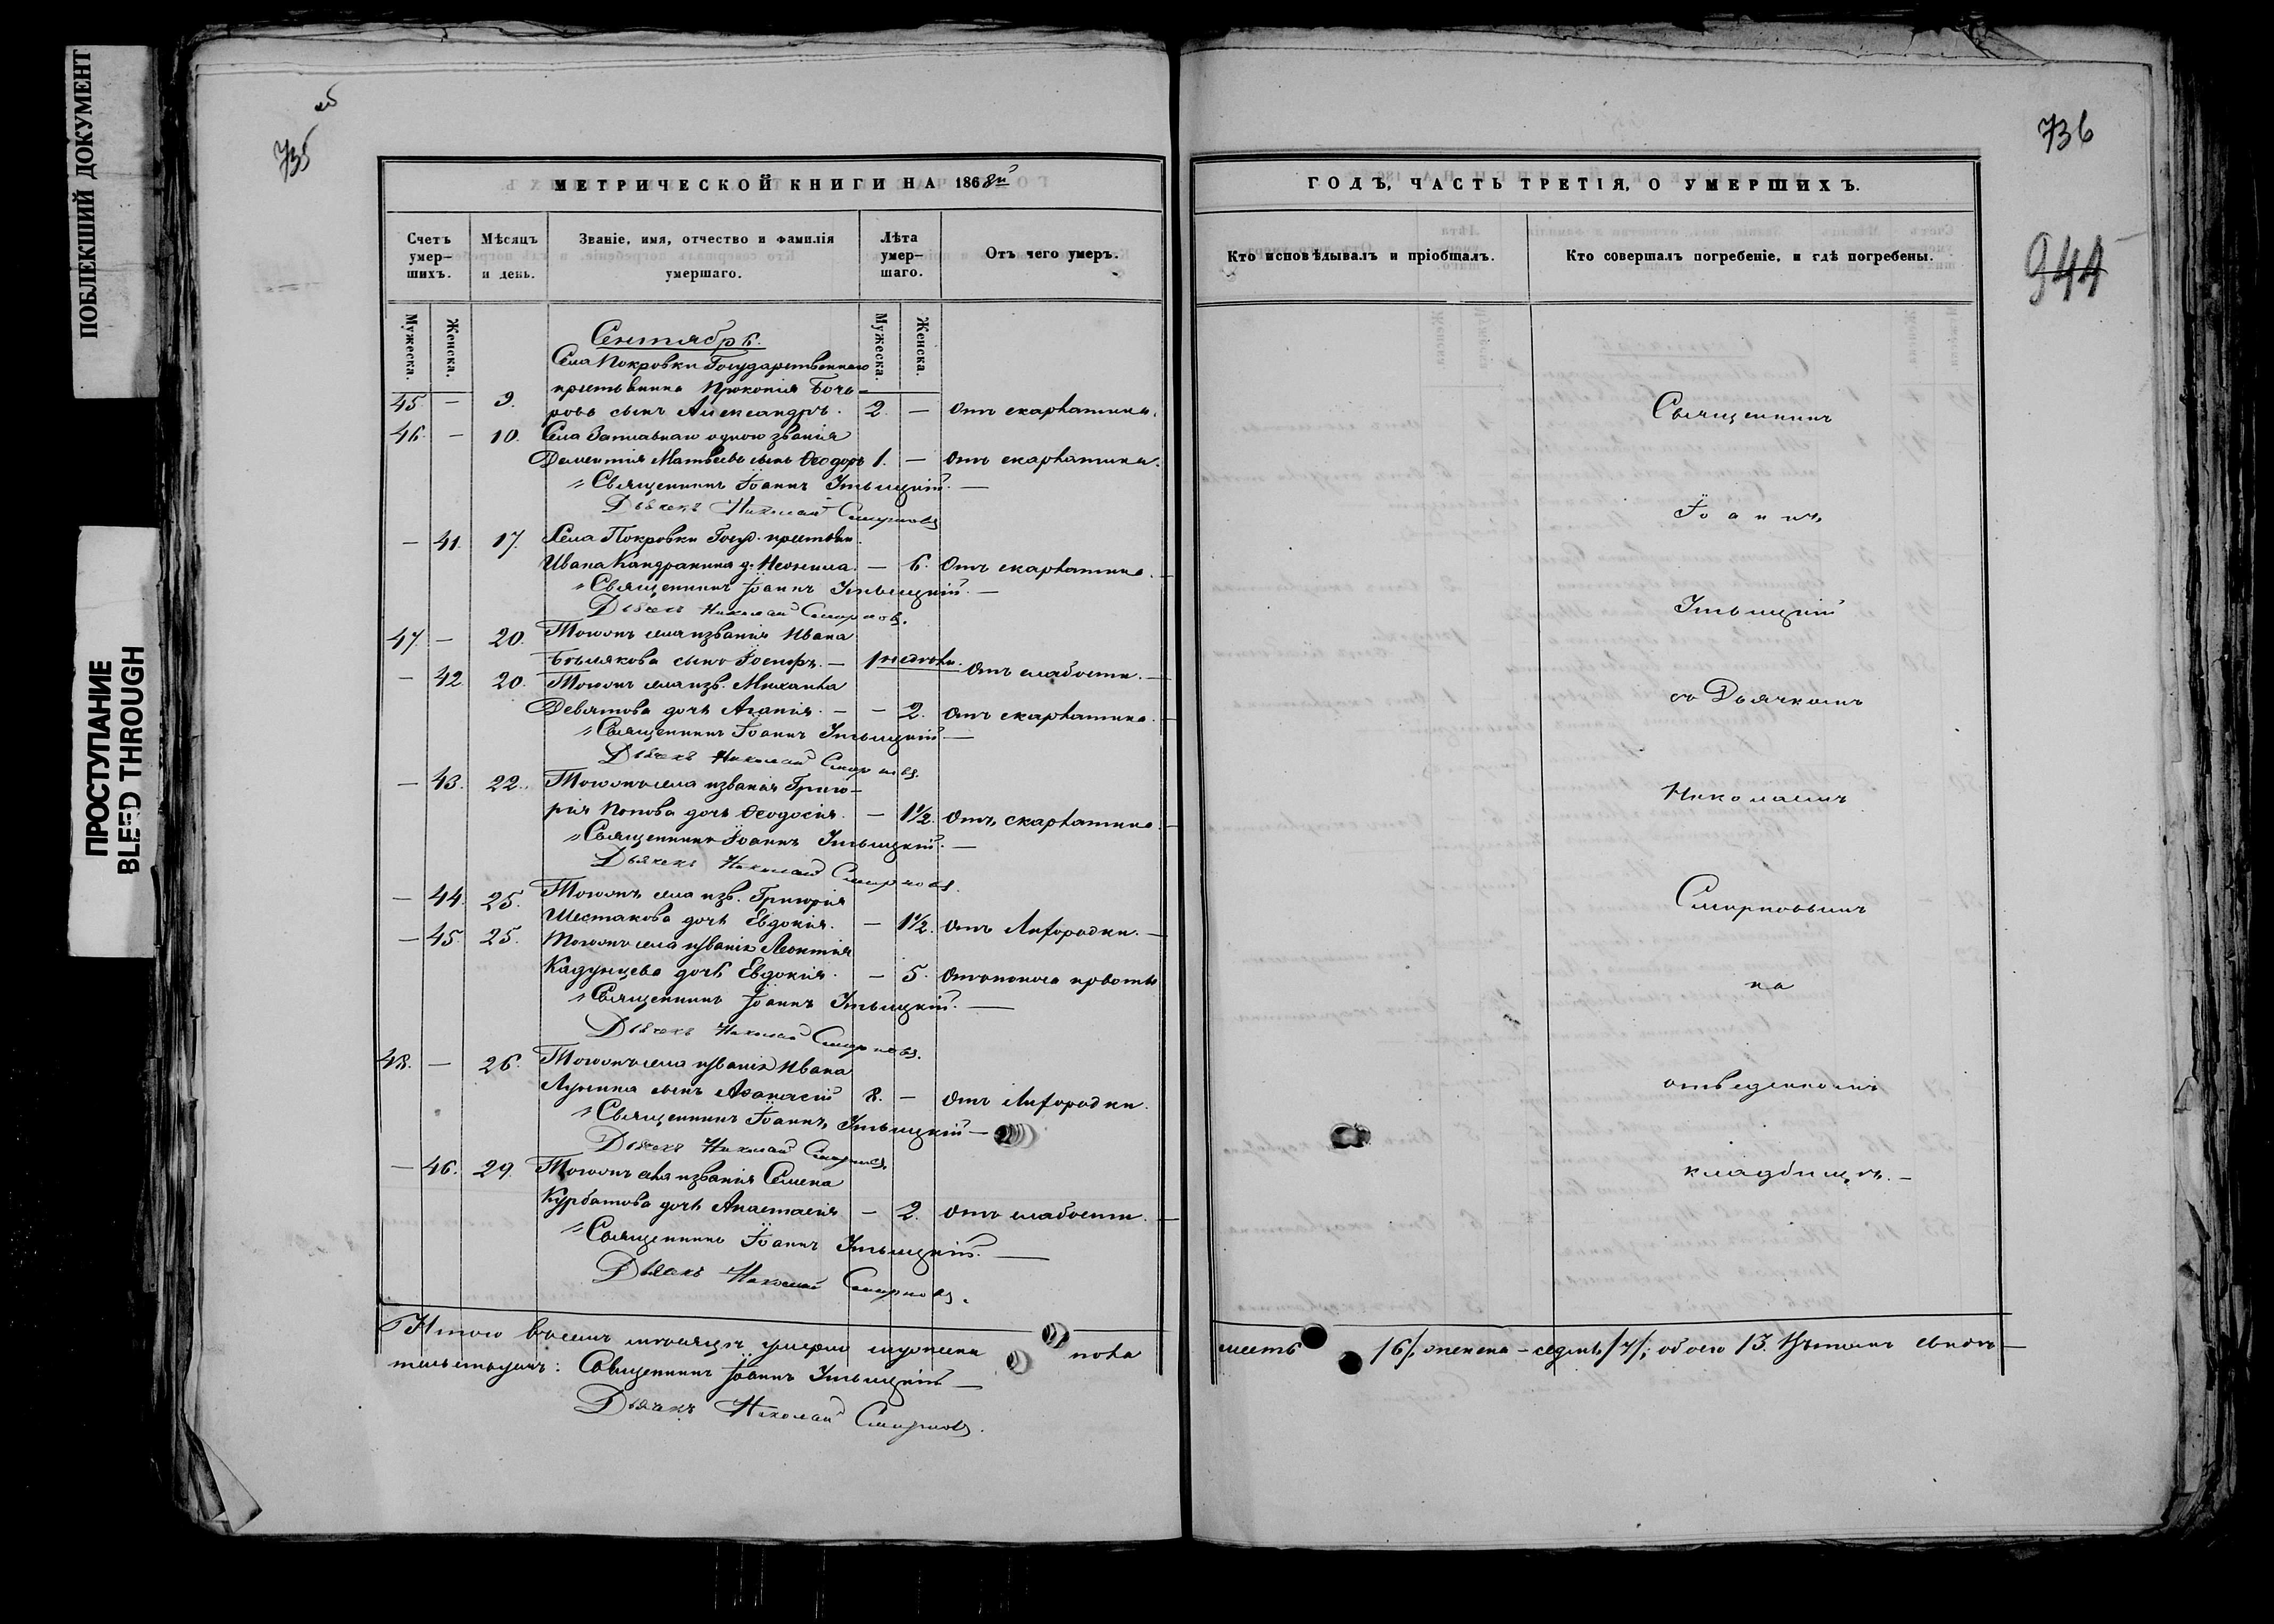 ПОБЛЕКШИЙ ДОКУМЕНТ
ПРОСТУПАНИЕ
BLEED THROUGH
об
735
МЕТРИЧЕСКОЙ КНИГИ НА 1868й
Счетъ умер-шихъ.
Мѣсяцъ и день.
Званіе, имя, отчество и фамилія умершаго.
Лѣта умер-шаго.
Отъ чего умеръ.
Мужеска.
Женска.
Мужеска.
Женска.
Сентябрь.
Села Покровки Государственнаго
крестьянина Прокопія Боча-
45 — 9. рова сынъ Александръ. 2. — Отъ скарлатины.
46. — 10. Села Заплавнаго однаго званія
Дементія Матвѣева сынъ Ѳеодоръ 1. — Отъ скарлатины.
Священникъ Іоаннъ
Дьячекъ Николай Смирновъ
— 41. 17. Села Покровки Госуд. крестьян.
Ивана Кандрашина д. Неонила. — 6. Отъ скарлатины.
Священникъ Іоаннъ
Дьячекъ Николай Смирновъ.
47. — 20. Тогожъ села и званія Ивана
Бѣлякова сынъ Іосифъ. — 1 недѣли. Отъ слабости.
— 42. 20. Тогожъ села и зв. Михаила
Девятова дочь Агапія. — — 2. Отъ скарлатины.
Священникъ Іоаннъ
Дьячекъ Николай Смирновъ.
— 43. 22. Тогожъ села и званія Григо-
рія Попова дочь Ѳеодосія. — 1½. Отъ скарлатины.
Священникъ Іоаннъ
Дьячекъ Николай Смирновъ.
— 44. 25. Тогожъ села и зв. Григорія
Шестакова дочь Евдокія. — 1½. Отъ Лихорадки. —
— 45. 25. Тогожъ села и званія Леонтія
Кадунцева дочь Евдокія. — 5. Отъ поноса
Священникъ Іоаннъ
Дьячекъ Николай Смирновъ.
48. — 26. Тогожъ села и званія Ивана
Лунина сынъ Аѳанасій 8. — Отъ Лихорадки.
Священникъ Іоаннъ
Дьячекъ Николай Смирновъ
— 46. 29. Тогожъ села и званія Семена
Курбатова дочь Анастасія — 2. Отъ слабости.
Священникъ Іоаннъ
Дьячекъ Николай Смирновъ.
Итого въ семъ мѣсяцѣ умерло мужеска пола
тельствуемъ: Священникъ Іоаннъ
Дьячекъ Николай Смирновъ.
736
944
ГОДЪ, ЧАСТЬ ТРЕТІЯ, О УМЕРШИХЪ.
Кто исповѣдывалъ и пріобщалъ.
Кто совершалъ погребеніе, и гдѣ погребены.
Священникъ
Іоаннъ
съ Дьячкомъ
Николаемъ
Смирновымъ
на
отведенномъ
кладбищѣ. —
шесть /6/, женска — седмь /7/; обоего 13. Въ томъ свидѣ-